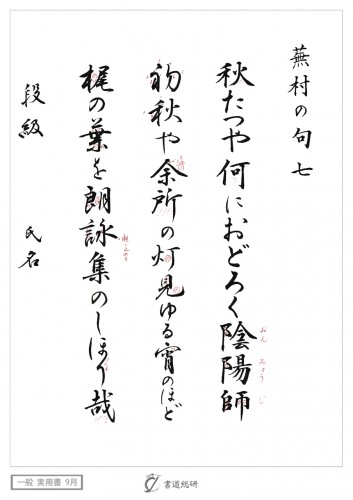 蕪村の句 七
秋たつや何におどろく陰陽師
おん みょう じ
初秋や余所の灯見ゆる宵のほど
梶の葉を朗詠集のしほり哉
段級 氏名
一般 実用書 9月
書道総研